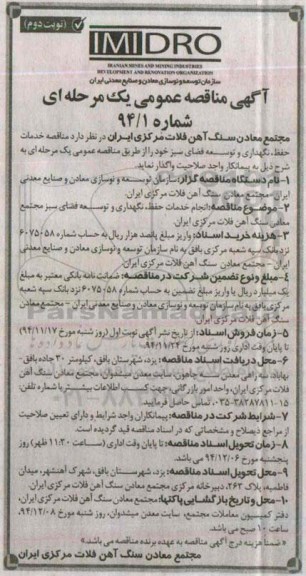 (نوبت دوم)
IMIDRO
IRANIAN MINES AND MINING INDUSTRIES
DEVELOPMENT AND RENOVATION ORGANIZATION
سازمان توسعه و نوسازی معادن و صنایع معدنی ایران
آگهی مناقصه عمومی یک مرحله ای
شماره ۹۴/۱
مجتمع معادن سنگ آهن فلات مرکزی ایران در نظر دارد مناقصه خدمات
حفظ، نگهداری و توسعه فضای سبز خود را از طریق مناقصه عمومی یک مرحله ای به
شرح ذیل به پیمانکار واجد صلاحیت واگذار نماید.
۱- نام دستگاه مناقصه گزار: سازمان توسعه و نوسازی معادن و صنایع معدنی
ایران- مجتمع معادن سنگ آهن فلات مرکزی ایران.
۲- موضوع مناقصه: انجام خدمات حفظ، نگهداری و توسعه فضای سبز مجتمع
معادن سنگ آهن فلات مرکزی ایران.
۳- هزینه خرید اسناد: واریز مبلغ پانصد هزار ریال به حساب شماره ۶۰۷۵۰۵۸
نزد بانک سپه شعبه مرکزی بافق به نام سازمان توسعه و نوسازی معادن و صنایع معدنی
ایران - مجتمع معادن سنگ آهن فلات مرکزی ایران.
۴- مبلغ و نوع تضمین شرکت در مناقصه: ضمانت نامه بانکی معتبر به مبلغ
یک میلیارد ریال یا واریز مبلغ تضمین به حساب شماره ۶۰۷۵۰۵۸ نزد بانک سپه شعبه
مرکزی بافق به نام سازمان توسعه و نوسازی معادن و صنایع معدنی ایران - مجتمع معادن
سنگ آهن فلات مرکزی ایران.
۵- زمان فروش اسناد: از تاریخ نشر آگهی نوبت اول (روز شنبه مورخ ۹۴/۱۱/۱۷)
تا پایان وقت اداری روز شنبه مورخ ۹۴/۱۱/۲۴
۶- محل دریافت اسناد مناقصه: یزد، شهرستان بافق، کیلومتر ۳۰ جاده بافق-
بهاباد، سه راهی معدن سه چاهون، سایت معدن میشدوان، مجتمع معادن سنگ آهن
فلات مرکزی ایران، واحد امور بازرگانی، جهت کسب اطلاعات بیشتر با شماره تلفن:
۱۵-۰۳۵-۳۸۲۸۷۸۱۱ تماس حاصل فرمایید.
۷- شرایط شرکت در مناقصه: پیمانکاران واجد شرایط و دارای تعیین صلاحیت
از مراجع ذیصلاح و مشخصاتی که در اسناد مناقصه قید گردیده است.
۸- زمان تحویل اسناد مناقصه: تا پایان وقت اداری (ساعت ۱۱:۳۰ ظهر) روز
پنجشنبه مورخ ۹۴/۱۲/۰۶ می باشد.
۹- محل تحویل اسناد مناقصه: یزد، شهرستان بافق، شهرک آهنشهر، میدان
فاطمیه، پلاک ۲۶۳، دبیرخانه مرکزی مجتمع معادن سنگ آهن فلات مرکزی ایران.
۱۰- محل و تاریخ بازگشایی پاکتها: مجتمع معادن سنگ آهن فلات مرکزی ایران،
دفتر کمیسیون معاملات مجتمع، سایت معدن میشدوان، روز شنبه مورخ ۹۴/۱۲/۰۸،
ساعت ۱۰ صبح می باشد.
« ضمناً هزینه درج آگهی مناقصه به عهده برنده مناقصه می باشد.»
مجتمع معادن سنگ آهن فلات مرکزی ایران